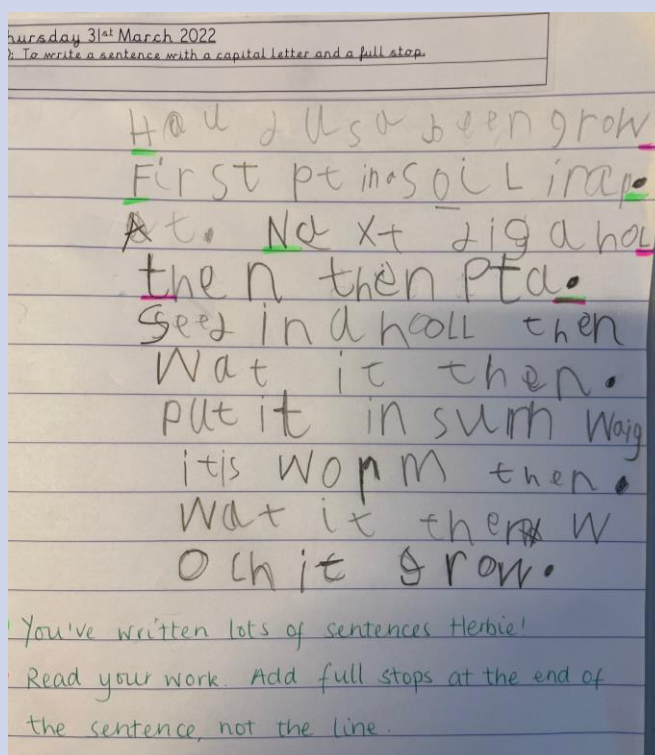 hursday 31st March 2022
: To write a sentence with a capital letter and a full stop.
Hau dusa been grow
First pt in a soiL inap.
At. Naxt dig a hoL
then then pta.
Seed in a hooLL then
Wat it then.
put it in sum waig
itis worm then.
Wat it then w
Och it grow.
You've written lots of sentences Herbie!
Read your work. Add full stops at the end of
the sentence, not the line.